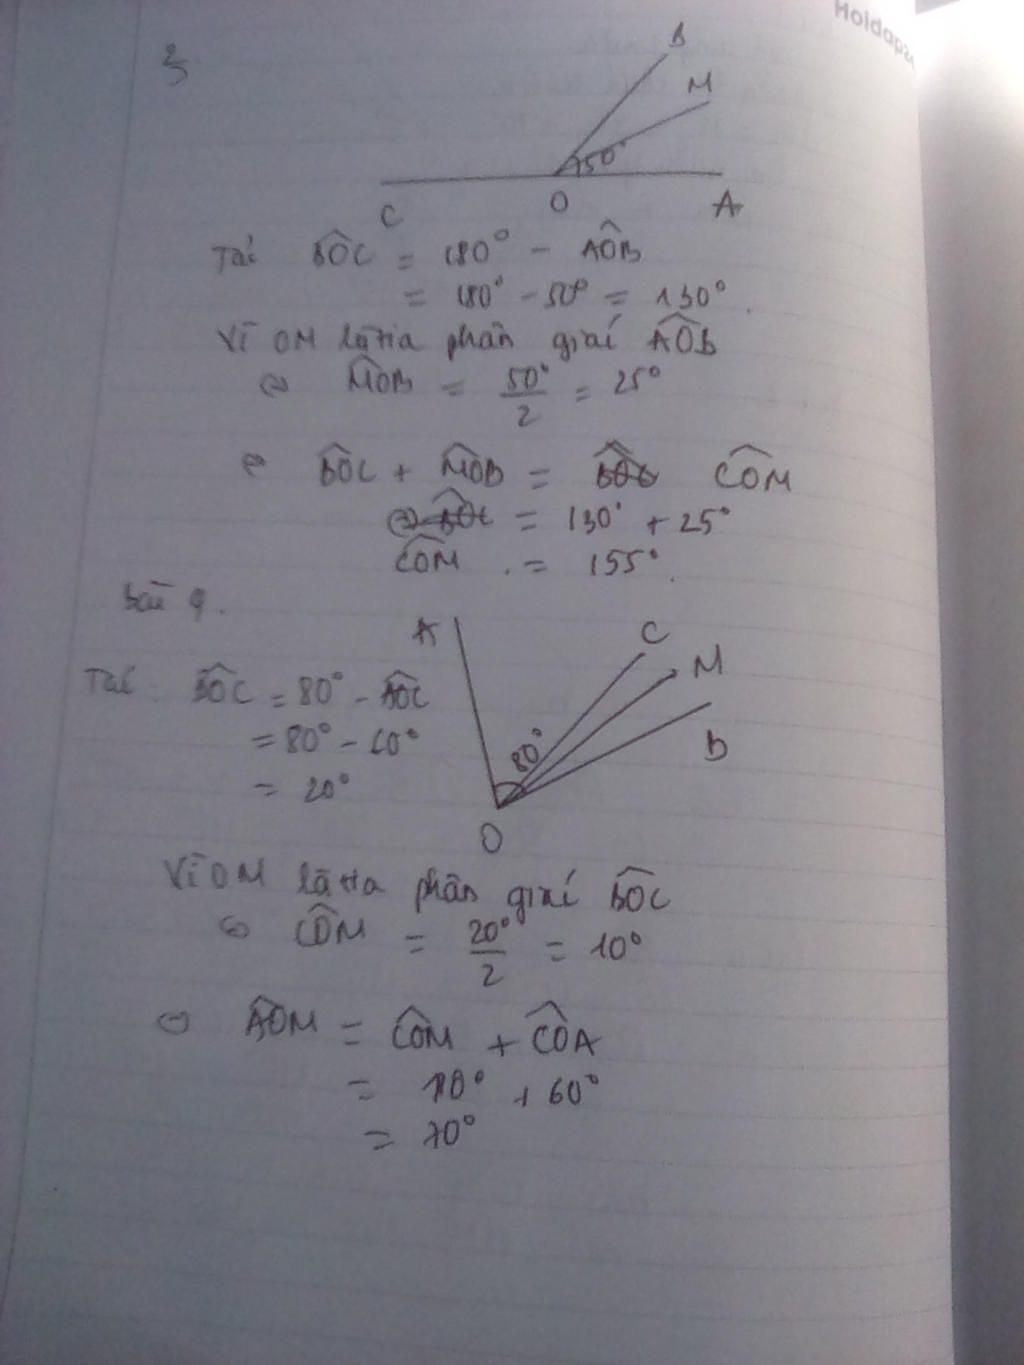 Holdaps
3
B
M
50°
C
O
A
Tací BOC = 180° - AOB
= 180° - 50° = 130°.
Vì OM là tia phân giác AOB
MOB = 50°/2 = 25°
BOC + MOB = COM
= 130° + 25°
COM = 155°.
Bài 9.
A
C
M
B
80°
O
BOC = 80° - AOC
= 80° - 60°
= 20°
Vì OM là tia phân giác BOC
COM = 20°/2 = 10°
AOM = COM + COA
= 10° + 60°
= 70°